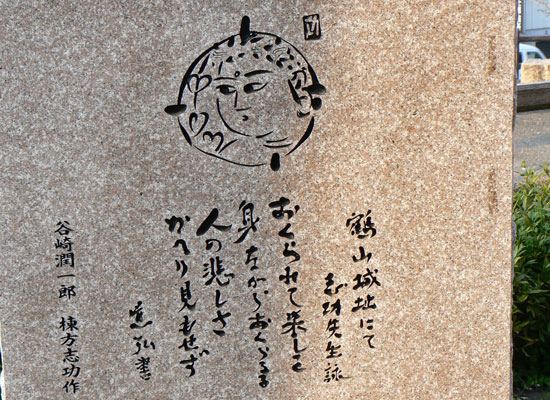 鶴山城址にて
志功先生詠
おくられて来し
身ながらおくらるる
人の悲しさ
かへり見もせず
弘書
谷崎潤一郎 棟方志功作